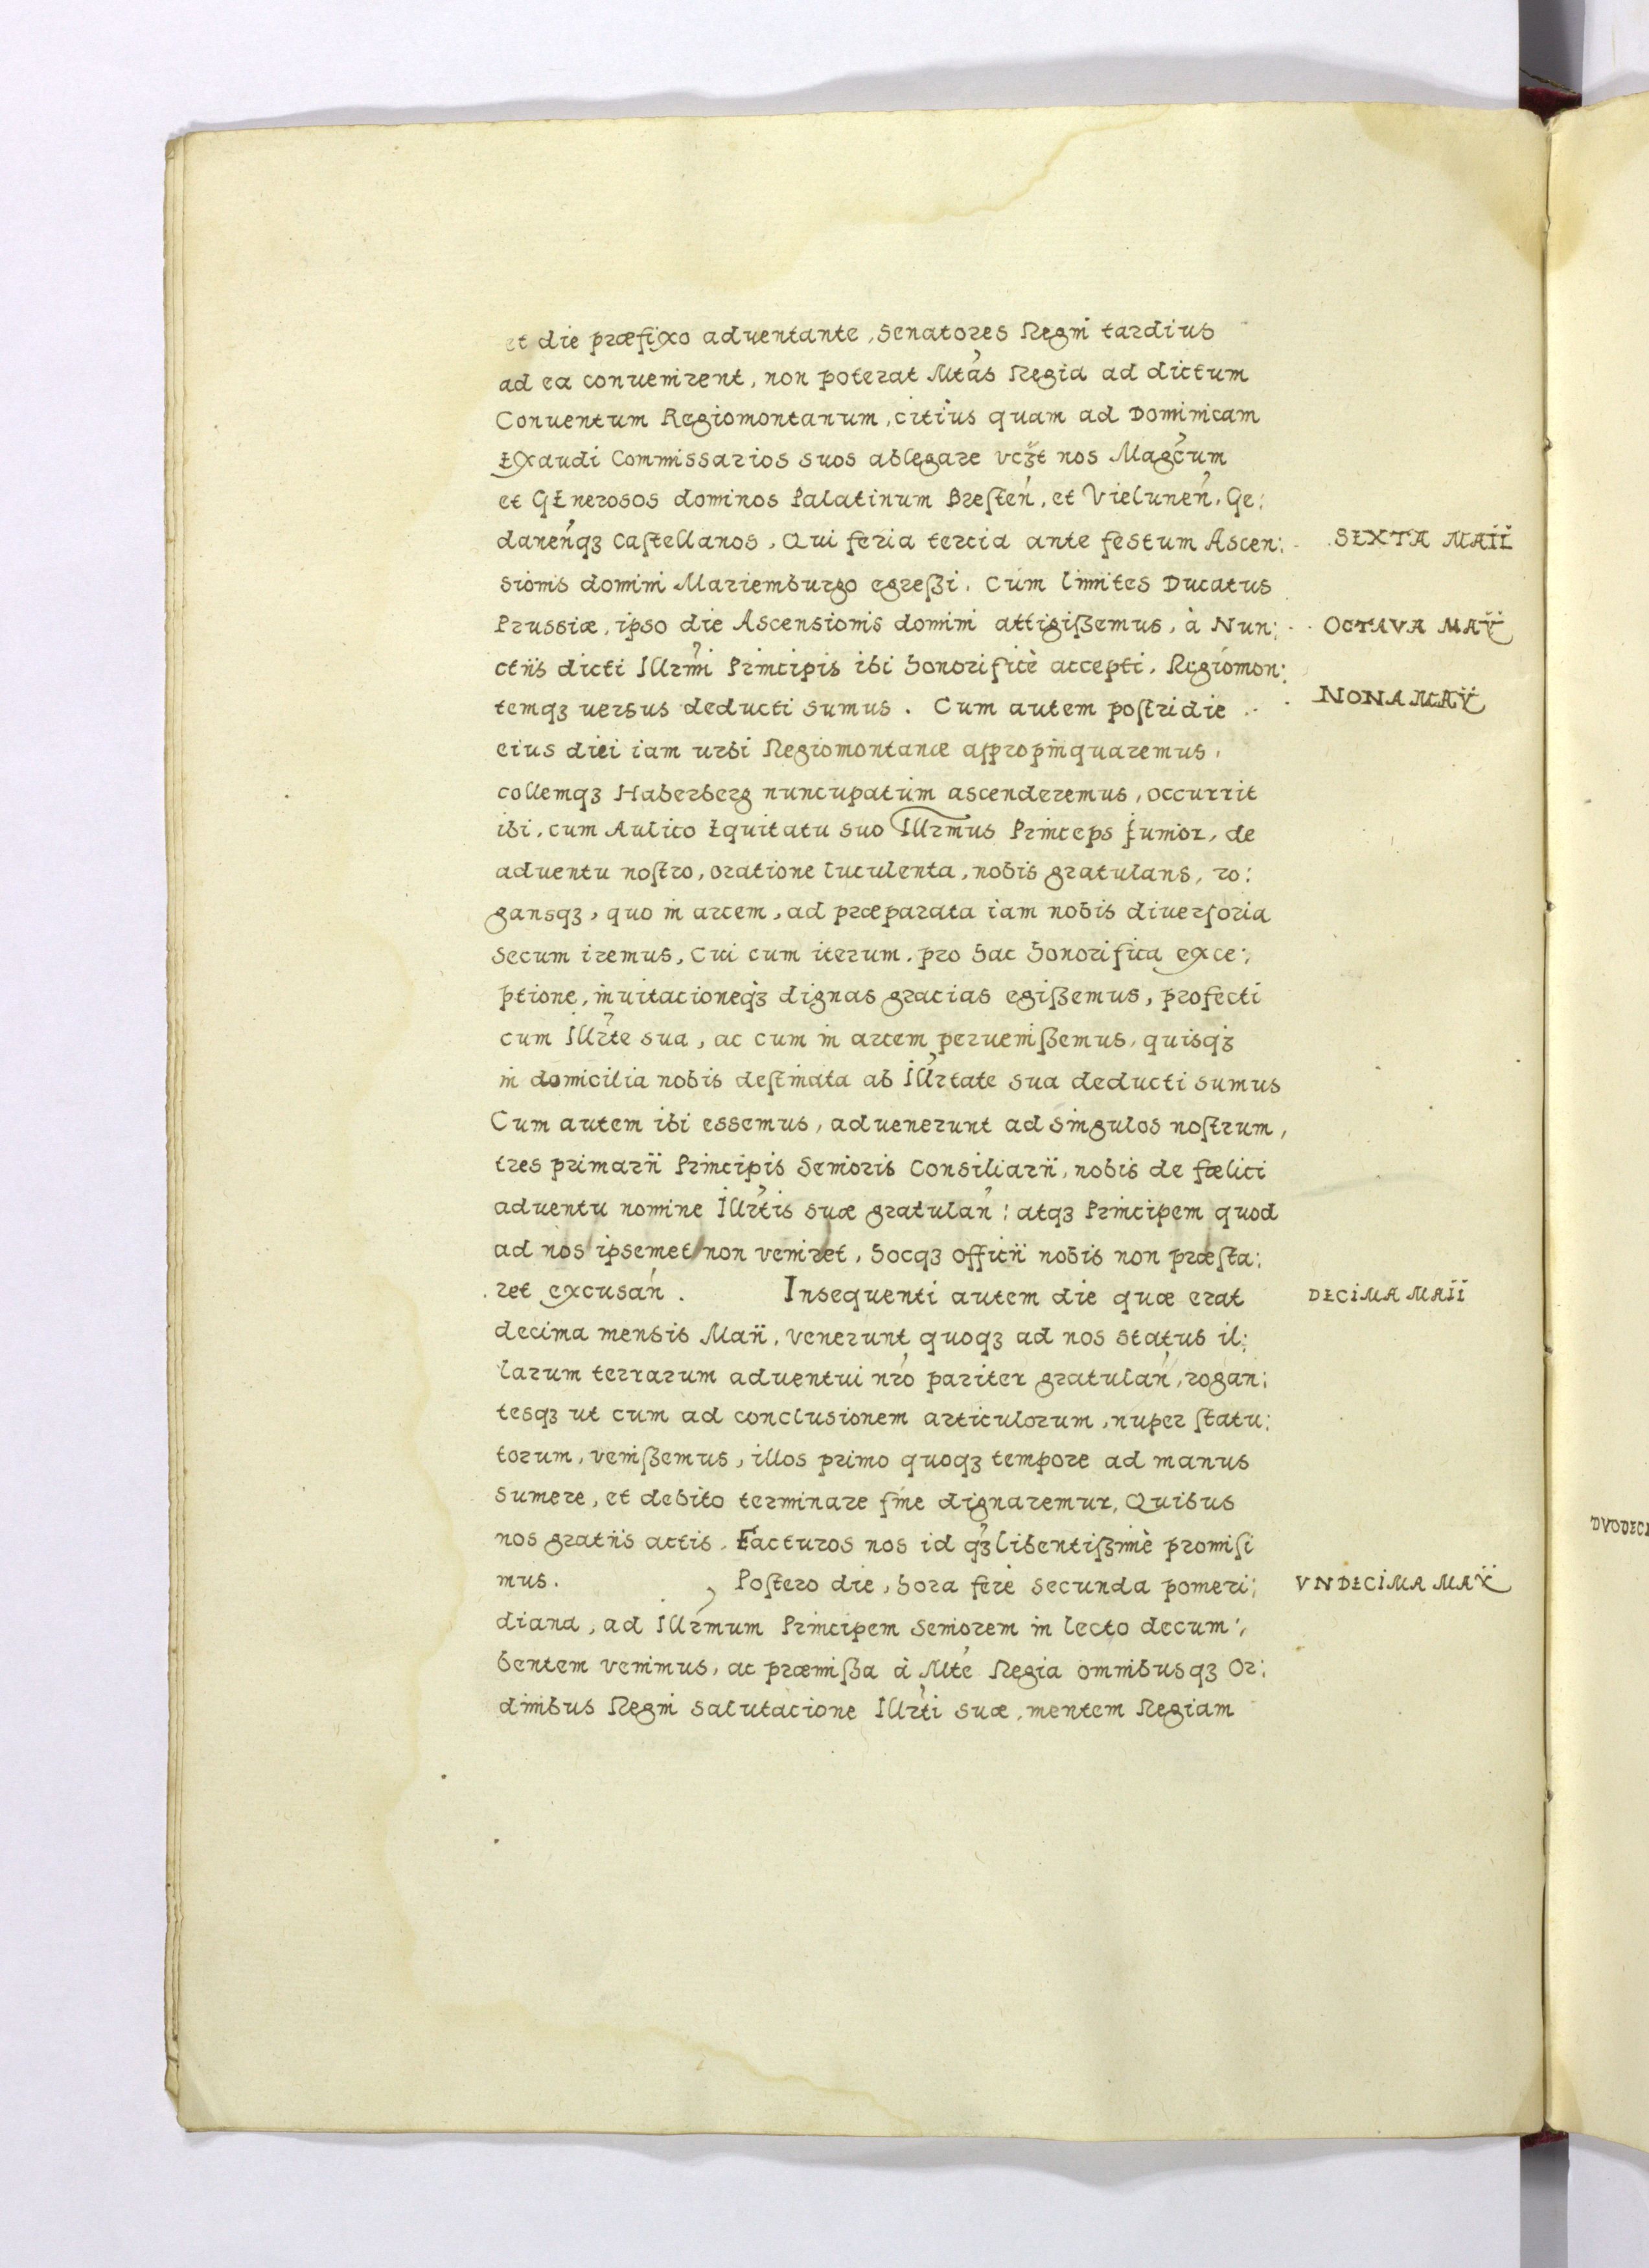 et die præfixo aduentante, Senatores Regni tardius
ad ea conuenirent, non poterat Mtas Regia ad dictum
Conuentum Regiomontanum, citius quam ad Dominicam
Exaudi Commissarios suos ablegare vczt nos Magcum
et GEnerosos dominos Palatinum Breſten, et Vielunen, Ge:
danenqꝫ Caſtellanos, Qui feria tercia ante festum Ascen:
SEXTA MAII
sionis domini Mariemburgo egreßi. Cum limites Ducatus
Prussiæ, ipso die Ascensionis domini attigißemus, à Nun:
OCTAVA MAIJ
ctiis dicti Illrmi Principis ibi honorificè accepti, Regiomon:
temqꝫ uersus deducti sumus. Cum autem poſtridie
NONA MAIJ
eius diei iam urbi Regiomontanæ appropinquaremus,
collemqꝫ Haberberg nuncupatum ascenderemus, occurrit
ibi, cum Aulico Equitatu suo Illrmus Princeps Junior, de
aduentu noſtro, oratione luculenta, nobis gratulans, ro:
gansqꝫ, quo in arcem, ad præparata iam nobis diuerſoria
secum iremus, Cui cum iterum, pro hac honorifica exce:
ptione, inuitacioneqꝫ dignas gracias egißemus, profecti
cum Illrte sua, ac cum in arcem peruenißemus, quisqꝫ
in domicilia nobis deſtinata ab Illrtate sua deducti sumus
Cum autem ibi essemus, aduenerunt ad singulos noſtrum,
tres primarii Principis Senioris Consiliarii, nobis de fœlici
aduentu nomine Illrtis suæ gratulan: atqꝫ Principem quod
ad nos ipsemet non veniret, hocqꝫ officii nobis non præſta:
ret excusan. Insequenti autem die quæ erat
DECIMA MAII
decima mensis Maii, venerunt quoqꝫ ad nos status il:
larum terrarum aduentui nro pariter gratulan, rogan:
tesqꝫ ut cum ad conclusionem articulorum, nuper ſtatu:
torum, venißemus, illos primo quoqꝫ tempore ad manus
sumere, et debito terminare fine dignaremur, Quibus
nos gratiis actis, Facturos nos id qꝫ libentißimè promiſi
mus. Poſtero die, hora fere secunda pomeri:
VNDECIMA MAIJ
diana, ad Illrmum Principem Seniorem in lecto decum:
bentem venimus, ac præmißa à Mte Regia omnibusqꝫ Or:
dinibus Regni salutacione Illrti suæ, mentem Regiam
DVODECI